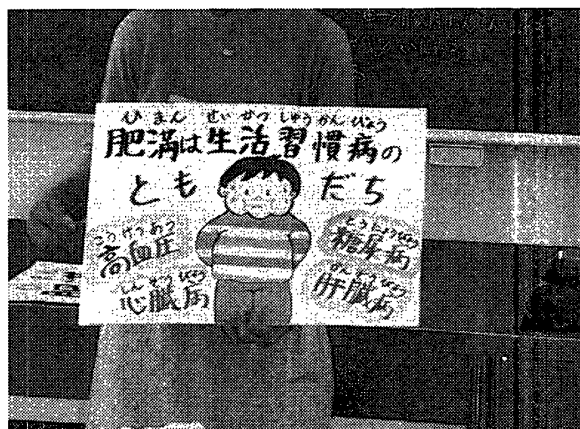 ひまん せいかつしゅうかんびょう
肥満は生活習慣病の
ともだち
こうけつあつ
高血圧
しんぞうびょう
心臓病
とうにょうびょう
糖尿病
かんぞうびょう
肝臓病